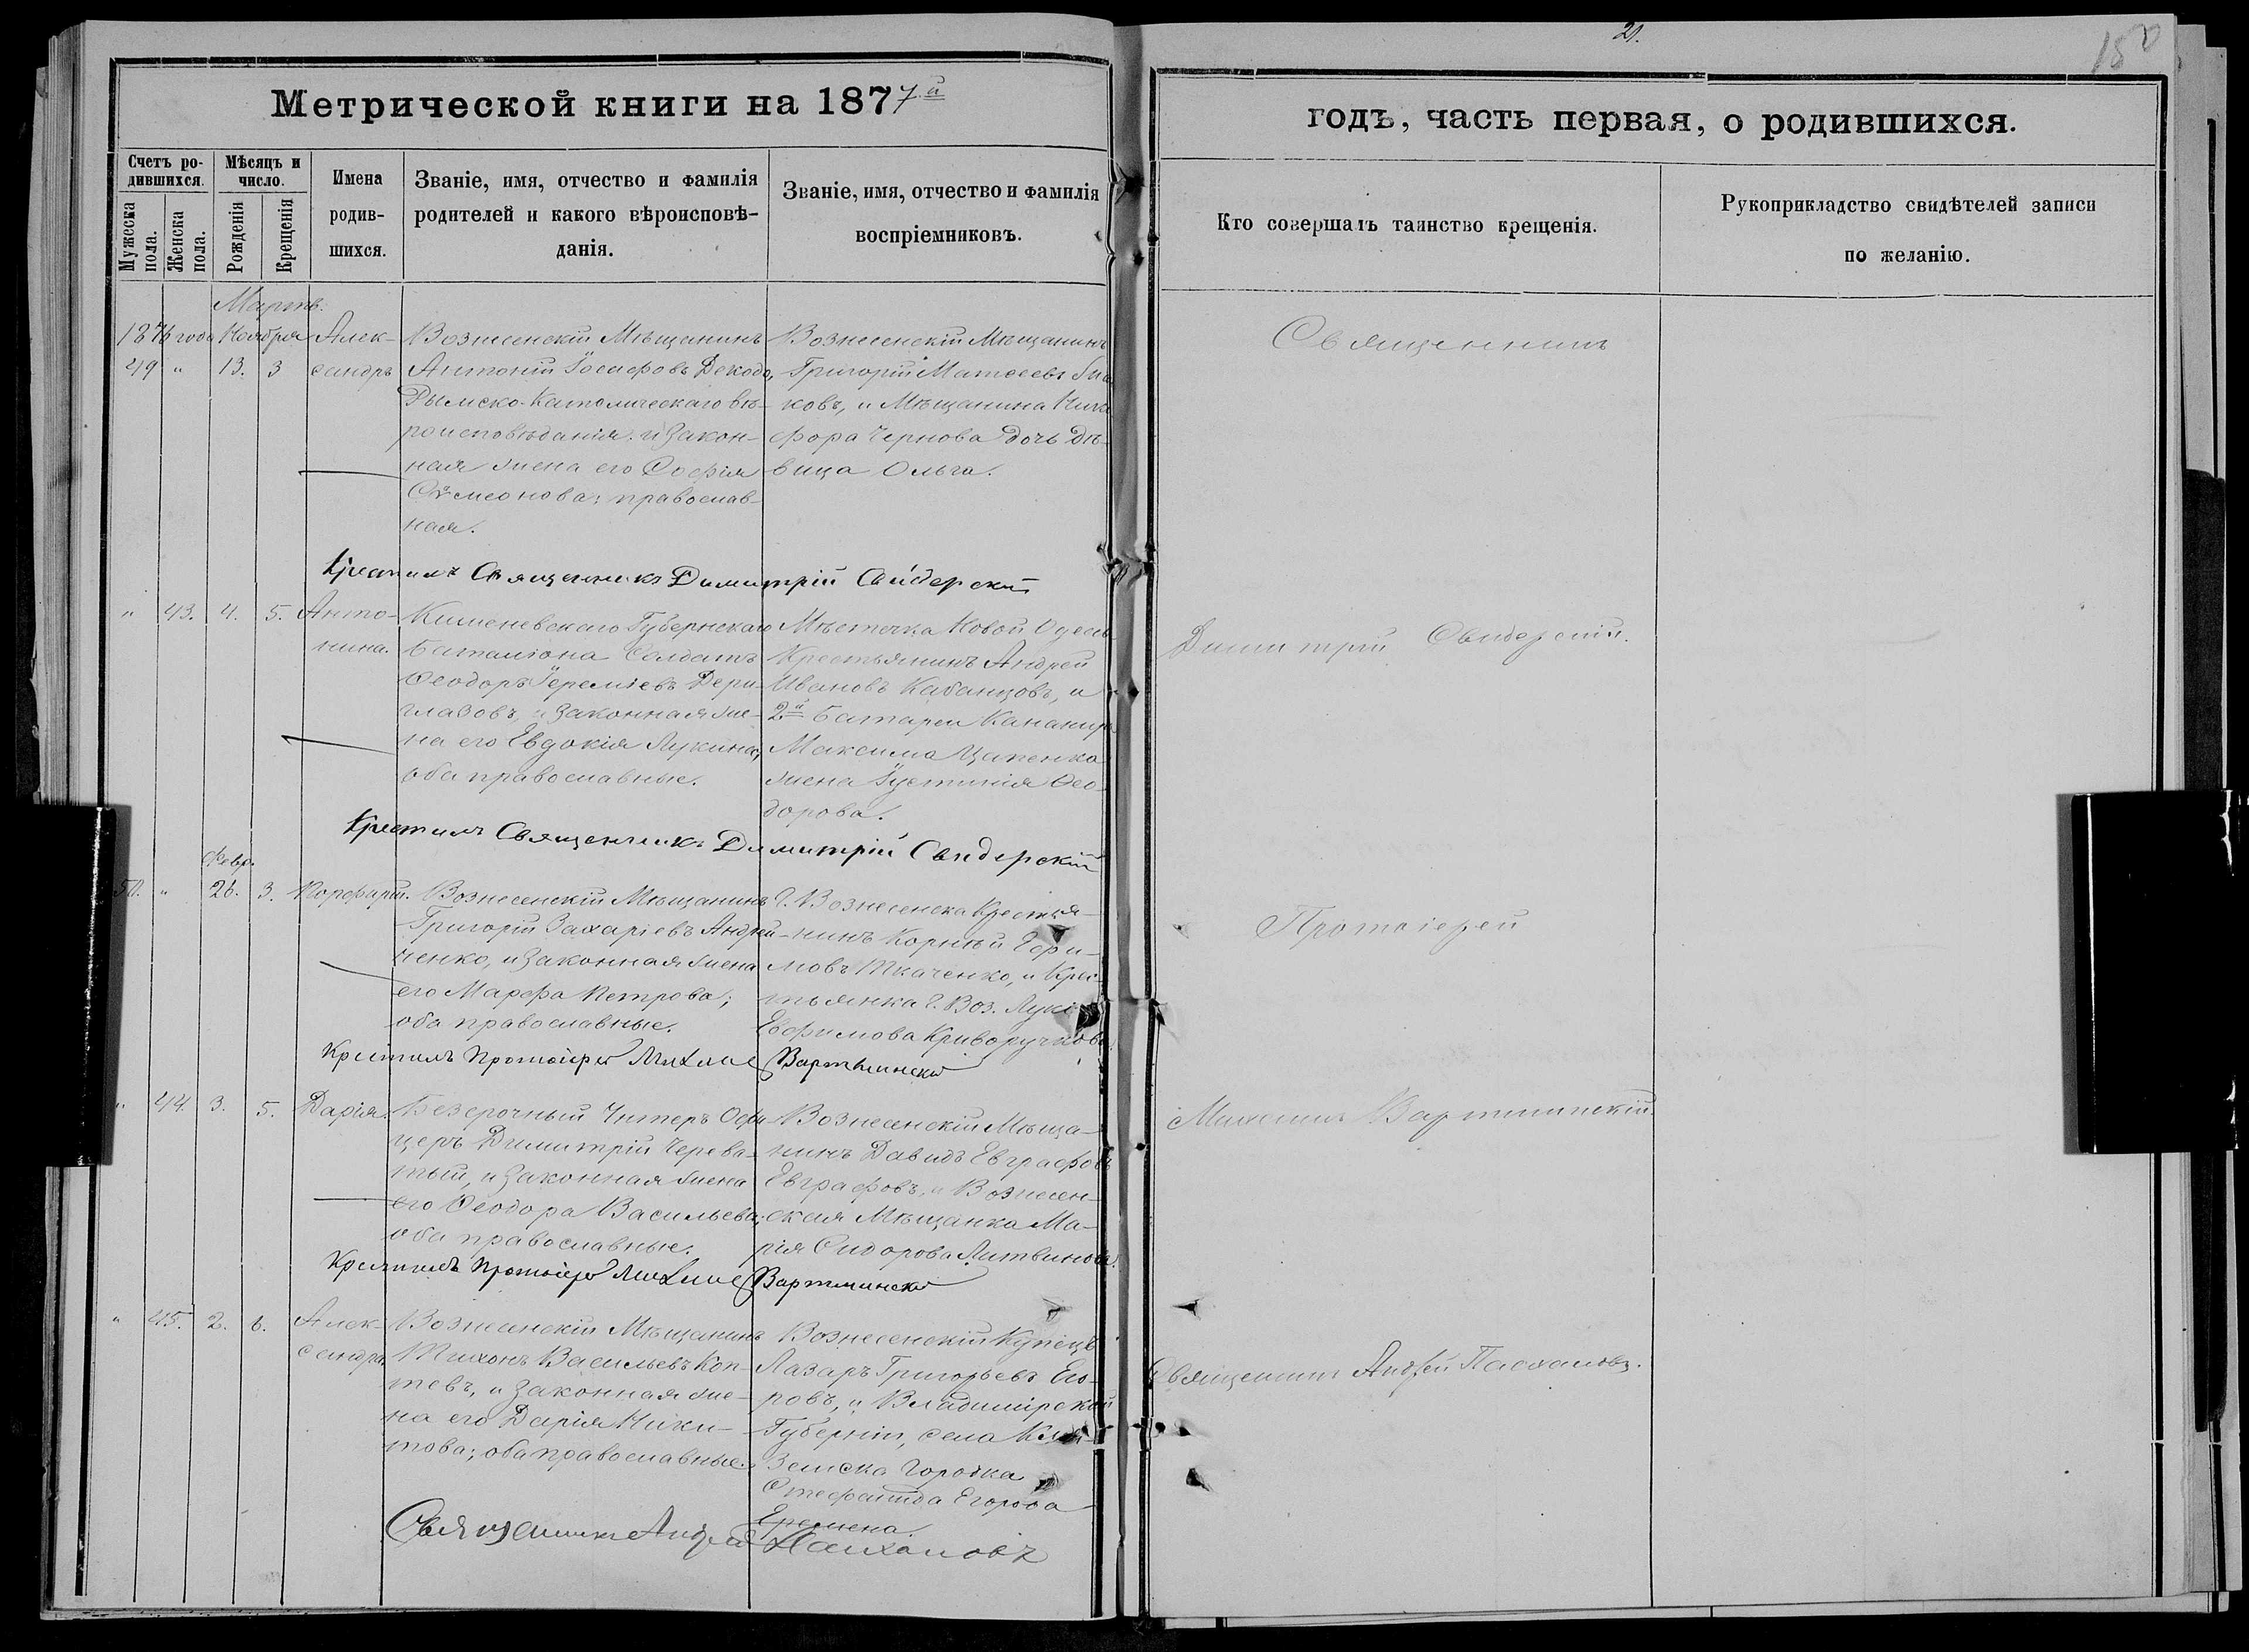 21.
150
Метрической книги на 1877й
годъ, часть первая, о родившихся.
Счетъ ро-
дившихся.
Мѣсяцъ и
число.
Мужеска
пола.
Женска
пола.
Рожденія
Крещенія
Имена
родив-
шихся.
Званіе, имя, отчество и фамилія
родителей и какого вѣроисповѣ-
данія.
Званіе, имя, отчество и фамилія
воспріемниковъ.
Кто совершалъ таинство крещенія.
Рукоприкладство свидѣтелей записи
по желанію.
Мартъ.
1876 года Ноября
49 " 13. 3
Алек-
сандръ
Вознесенскій Мѣщанинъ
Антоній Іосифовъ
Римско-Католическаго вѣ-
роисповѣданія. и закон-
ная жена его Софія
Сѵмеонова; православ-
ная.
Вознесенскій Мѣщанинъ
Григорій Матѳеевъ
ковъ, и Мѣщанина Ники
фора Чернова дочь Дѣ-
вица Ольга.
Крестилъ Священникъ Димитрій Свидерскій
Священникъ
Димитрій Свидерскій.
" 43. 4. 5.
Анто-
нина.
Кишеневскаго Губернскаго
Баталіона Солдатъ
Ѳеодоръ Іереміевъ Дери-
глазовъ, и законная же-
на его Евдокія Лукина,
оба православные.
Мѣстечка Новой Одессы
Крестьянинъ Андрей
Ивановъ Кабанцовъ, и
2й Батареи Канонира
Максима Цапенка
жена Іустинія Ѳео-
дорова.
Крестилъ Священникъ Димитрій Свидерскій
Февр.
50. " 26. 3.
Порфирій.
Вознесенскій Мѣщанинъ
Григорій Захаріевъ Андрій-
ченко, и законная жена
его Марфа Петрова;
оба православные.
Г. Вознесенска Крестья-
нинъ Корнѣй Ефи-
мовъ Ткаченко, и Крес-
тьянка Г. Воз.
Евфимова Криворучкова
Крестилъ Протоіерей Михаилъ Вартминскій
Протоіерей
Михаилъ Вартминскій.
" 44. 3. 5.
Дарія.
Безсрочный Унтеръ Офи
церъ Димитрій Черева-
тый, и законная жена
его Ѳеодора Васильева;
оба православные.
Вознесенскій Мѣща-
нинъ Давидъ Евграфовъ
Евграфовъ, и Вознесен-
ская Мѣщанка Ма-
рія Сидорова Литвинова.
Крестилъ Протоіерей Михаилъ Вартминскій
" 45. 2. 6.
Алек-
сандра
Вознесенскій Мѣщанинъ
Тихонъ Васильевъ Коп-
тевъ, и законная же-
на его Дарія Ники-
това; оба православные.
Вознесенскій Купецъ
Лазаръ Григорьевъ Его-
ровъ, и Владимірской
Губерніи, села
Городка
Егорова
Священникъ Андрей Пасхаловъ
Священникъ Андрей Пасхаловъ.